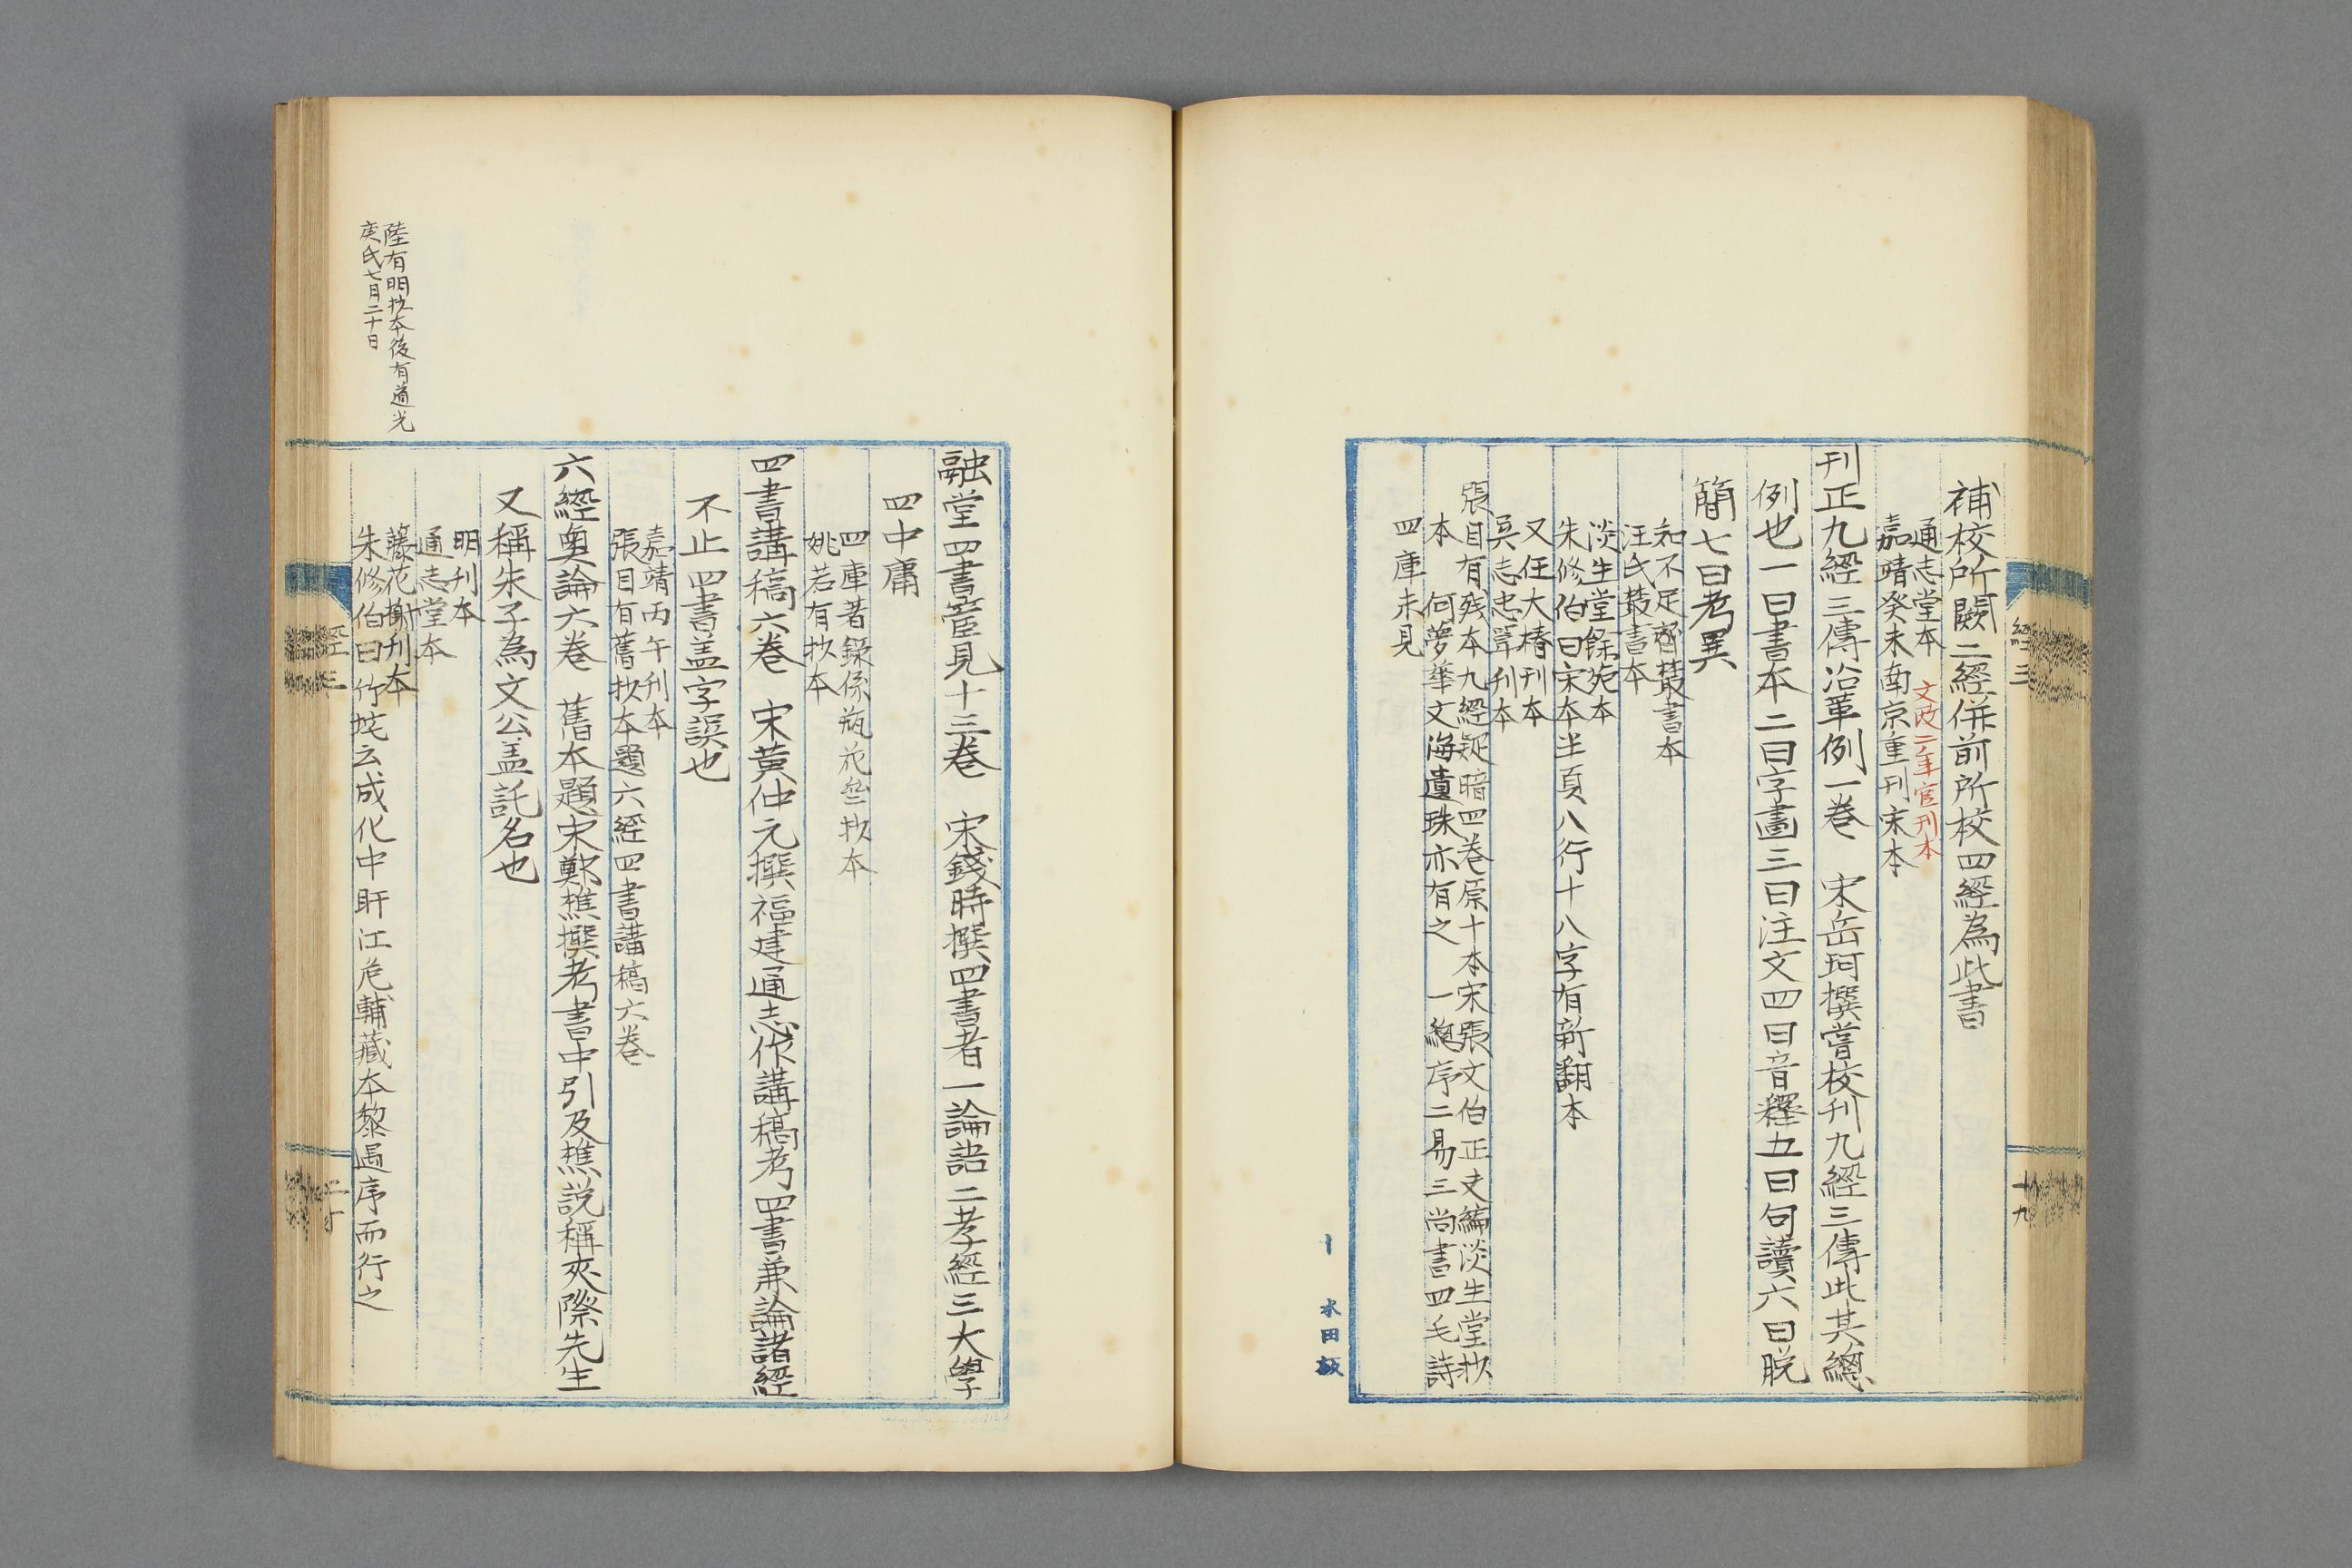 補校所闕二經併前所校四經為此書
通志堂本 文政二年官刊本
嘉靖癸未南京重刊宋本
刊正九經三傳沿革例一卷 宋岳珂撰嘗校刊九經三傳此其總
例也一曰書本二曰字畫三曰注文四曰音釋五曰句讀六曰脱
簡七曰考異
知不足齋叢書本
汪氏叢書本
淡生堂餘苑本
朱修伯曰宋本半頁八行十八字有新翻本
又任大椿刊本
吳志忠單刊本
張目有殘本九經疑暗四卷原十本宋張文伯正文編淡生堂抄
本 何夢華文海遺珠亦有之 一總序二易三尚書四毛詩
四庫未見
經三
十九
水田
融堂四書管見十三卷 宋錢時撰四書者一論語二孝經三大學
四中庸
四庫著錄係瓶花齋抄本
姚若有抄本
四書講稿六卷 宋黃仲元撰福建通志作講稿考四書兼論諸經
不止四書盖字誤也
嘉靖丙午刊本
張目有舊抄本題六經四書講稿六卷
六經奧論六卷 舊本題宋鄭樵撰考書中引及樵説稱夾際先生
又稱朱子為文公盖託名也
明刊本
通志堂本
藤花榭刊本
朱修伯曰竹垞云成化中盱江危輔藏本黎温序而行之
陸有明抄本後有道光
庚氏七月二十日
經三
二十